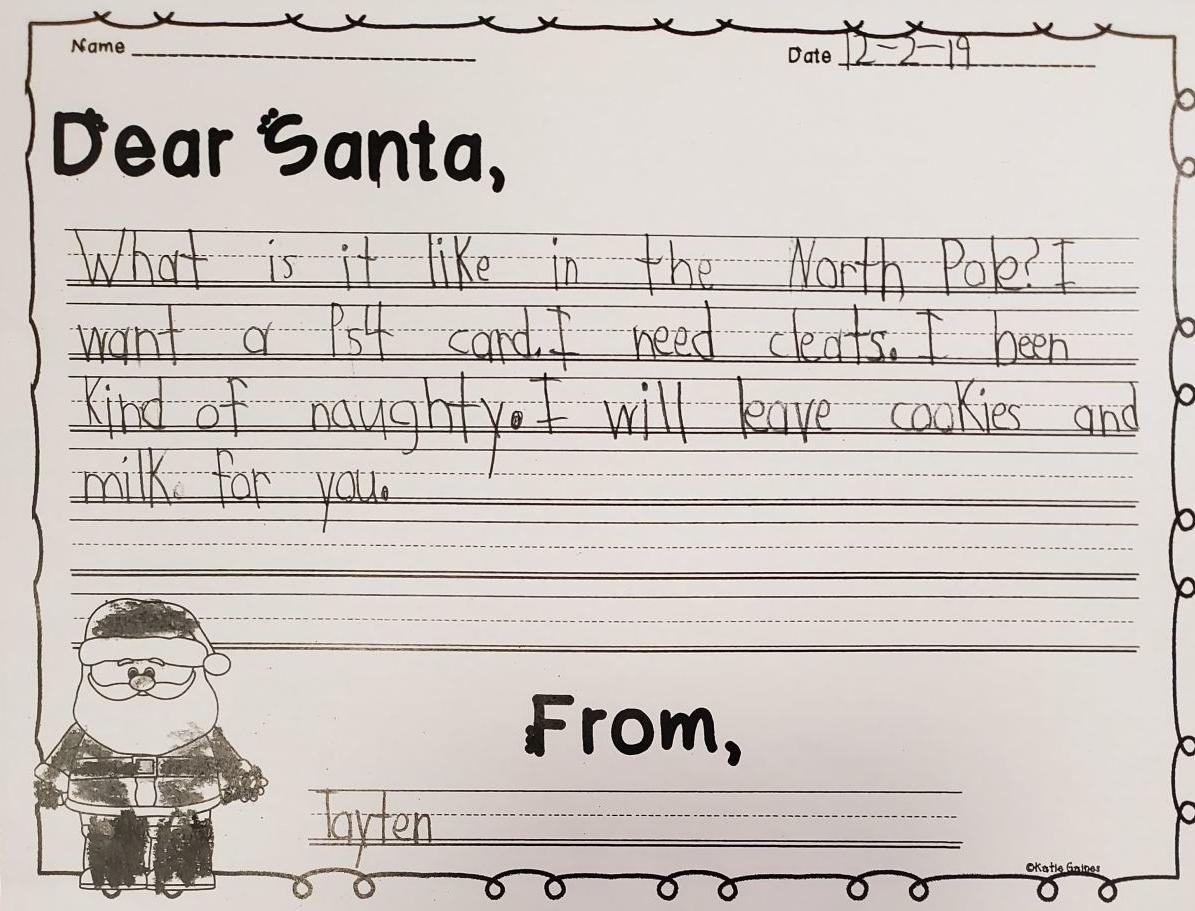 Name
Date 12-2-19
Dear Santa,
What is it like in the North Pole? I
want a Ps4 card. I need cleats. I been
kind of naughty. I will leave cookies and
milk. for you.
From,
Tayten
©Katie Gaines